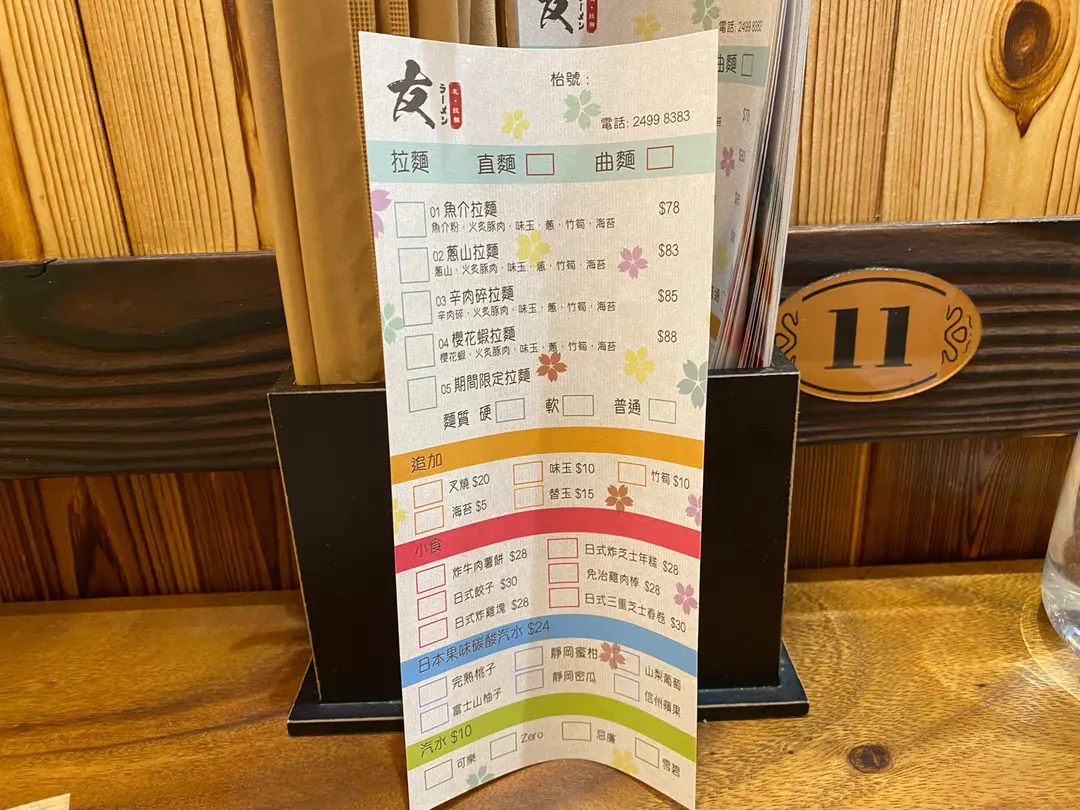 友
ラーメン
友・拉麵
枱號：
電話: 2499 8383
拉麵 直麵 曲麵
01 魚介拉麵 $78
魚介粉，火炙豚肉，味玉，蔥，竹筍，海苔
02 蔥山拉麵 $83
蔥山，火炙豚肉，味玉，蔥，竹筍，海苔
03 辛肉碎拉麵 $85
辛肉碎，火炙豚肉，味玉，蔥，竹筍，海苔
04 櫻花蝦拉麵 $88
櫻花蝦，火炙豚肉，味玉，蔥，竹筍，海苔
05 期間限定拉麵
麵質 硬 軟 普通
追加
叉燒 $20 味玉 $10 竹筍 $10
海苔 $5 替玉 $15
小食
炸牛肉薯餅 $28 日式炸芝士年糕 $28
日式餃子 $30 免治雞肉棒 $28
日式炸雞塊 $28 日式三重芝士春卷 $30
日本果味碳酸汽水 $24
完熟桃子 靜岡蜜柑 山梨葡萄
富士山柚子 靜岡密瓜 信州蘋果
汽水 $10
可樂 Zero 忌廉 雪碧
友
電話: 2499 8383
曲麵
11